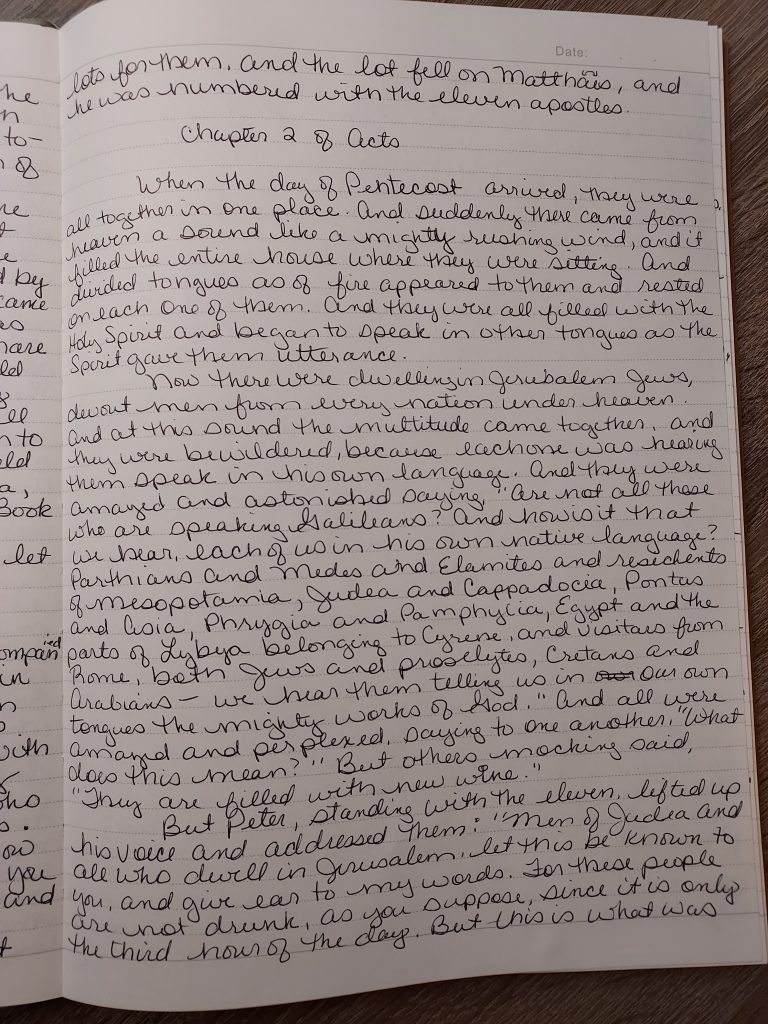 Date:
lots for them, and the lot fell on Matthais, and
he was numbered with the eleven apostles.
Chapter 2 of Acts
When the day of Pentecost arrived, they were
all together in one place. And suddenly there came from
heaven a sound like a mighty rushing wind, and it
filled the entire house where they were sitting. And
divided tongues as of fire appeared to them and rested
on each one of them. And they were all filled with the
Holy Spirit and began to speak in other tongues as the
Spirit gave them utterance.
Now there were dwelling in Jerusalem Jews,
devout men from every nation under heaven.
And at this sound the multitude came together, and
they were bewildered, because each one was hearing
them speak in his own language. And they were
amazed and astonished saying, "Are not all these
who are speaking Galileans? And how is it that
we hear, each of us in his own native language?
Parthians and Medes and Elamites and residents
of Mesopotamia, Judea and Cappadocia, Pontus
and Asia, Phrygia and Pamphylia, Egypt and the
parts of Lybya belonging to Cyrene, and visitors from
Rome, both Jews and proselytes, Cretans and
Arabians — we hear them telling us in our own
tongues the mighty works of God." And all were
amazed and perplexed, saying to one another, "What
does this mean?" But others mocking said,
"They are filled with new wine."
But Peter, standing with the eleven, lifted up
his voice and addressed them: "Men of Judea and
all who dwell in Jerusalem, let this be known to
you, and give ear to my words. For these people
are not drunk, as you suppose, since it is only
the third hour of the day. But this is what was